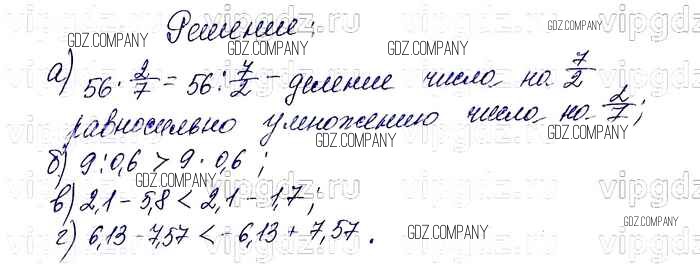 Решение:
а) 56 · 2/7 = 56 : 7/2 - деление числа на 7/2
равносильно умножению числа на 2/7;
б) 9 : 0,6 > 9 · 0,6;
в) 2,1 - 5,8 < 2,1 - 1,7;
г) 6,13 - 7,57 < -6,13 + 7,57.
GDZ.COMPANY
GDZ.COMPANY
GDZ.COMPANY
GDZ.COMPANY
GDZ.COMPANY
GDZ.COMPANY
GDZ.COMPANY
GDZ.COMPANY
vipgdz.ru
vipgdz.ru
vipgdz.ru
vipgdz.ru